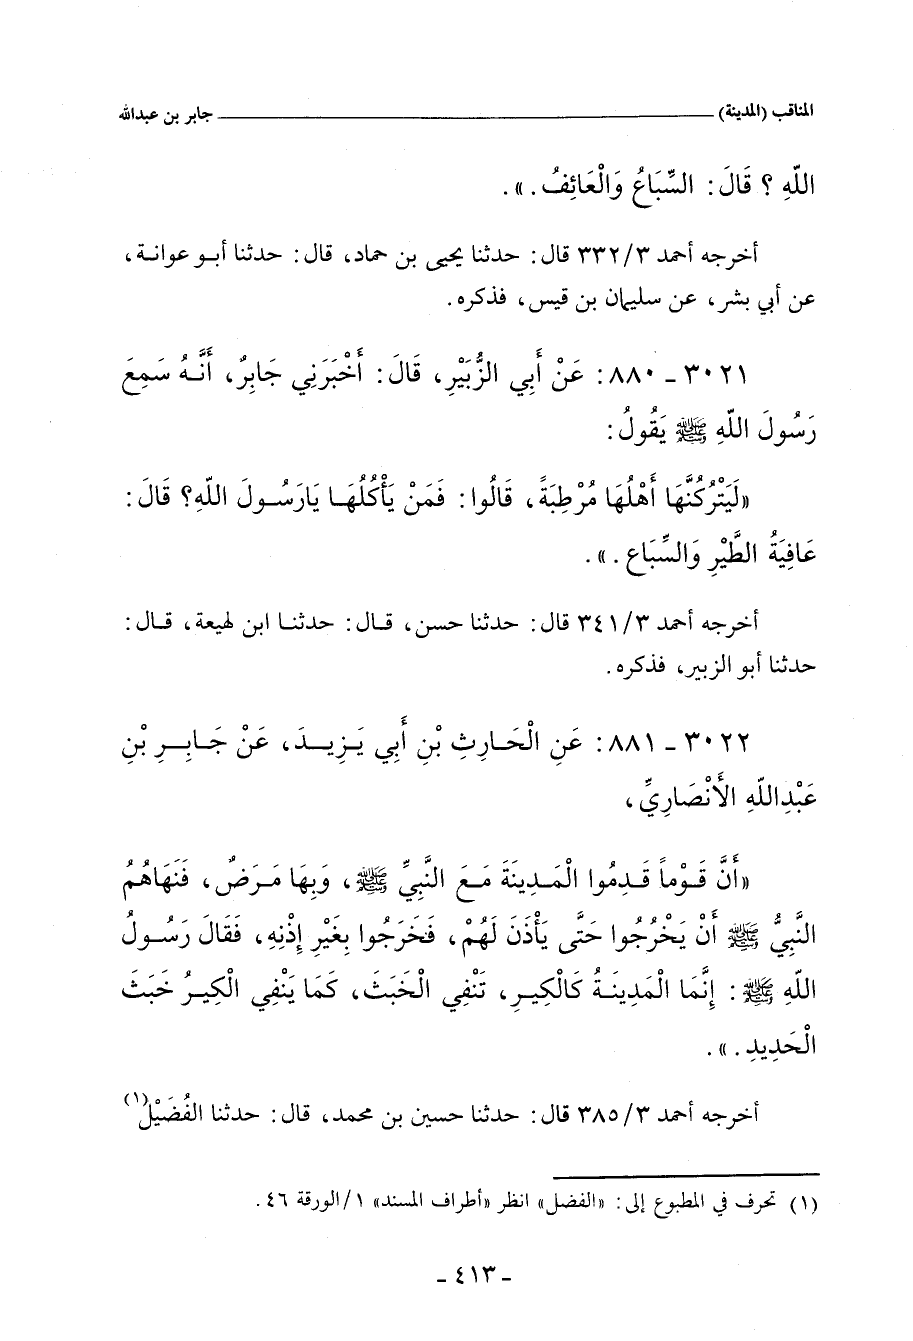 المناقب (المدينة) ــــــــــ جابر بن عبدالله
اللّهِ ؟ قَالَ : السِّبَاعُ وَالْعَائِفُ . » .
أخرجه أحمد ٣/ ٣٣٢ قال : حدثنا يحيى بن حماد، قال : حدثنا أبو عوانة ،
عن أبي بشر ، عن سليمان بن قيس ، فذكره .
٣٠٢١ - ٨٨٠ : عَنْ أَبِي الزُّبَيْرِ، قَالَ : أَخْبَرَنِي جَابِرٌ، أَنَّهُ سَمِعَ
رَسُولَ اللّهِ ﷺ يَقُولُ :
«لَيَتْرُكُنَّهَا أَهْلُهَا مُرْطِبَةً ، قَالُوا : فَمَنْ يَأْكُلُهَا يَارَسُولَ اللّهِ؟ قَالَ :
عَافِيَةُ الطَّيْرِ وَالسِّبَاعِ . » .
أخرجه أحمد ٣/ ٣٤١ قال : حدثنا حسن ، قال : حدثنا ابن لهيعة ، قال :
حدثنا أبو الزبير، فذكره .
٣٠٢٢ - ٨٨١ : عَنِ الْحَارِثِ بْنِ أَبِي يَزِيدَ، عَنْ جَابِرِ بْنِ
عَبْدِاللّهِ الأَنْصَارِيِّ ،
«أَنَّ قَوْماً قَدِمُوا الْمَدِينَةَ مَعَ النَّبِيِّ ﷺ ، وَبِهَا مَرَضٌ ، فَنَهَاهُمُ
النَّبِيُّ ﷺ أَنْ يَخْرُجُوا حَتَّى يَأْذَنَ لَهُمْ ، فَخَرَجُوا بِغَيْرِ إِذْنِهِ، فَقَالَ رَسُولُ
اللّهِ ﷺ : إِنَّمَا الْمَدِينَةُ كَالْكِيرِ ، تَنْفِي الْخَبَثَ، كَمَا يَنْفِي الْكِيرُ خَبَثَ
الْحَدِيدِ . » .
أخرجه أحمد ٣/ ٣٨٥ قال : حدثنا حسين بن محمد، قال : حدثنا الفُضَيْل(١)
(١) تحرف في المطبوع إلى : «الفضل» انظر «أطراف المسند» ١/ الورقة ٤٦ .
- ٤١٣ -